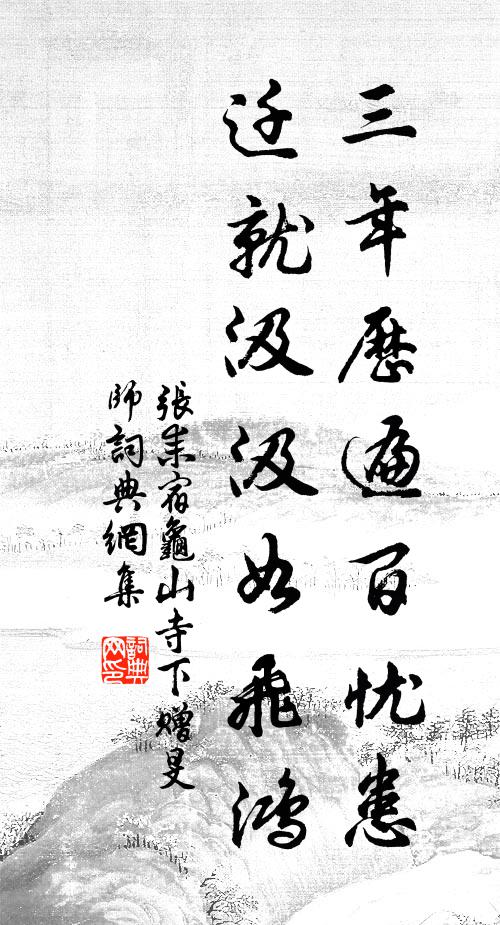 三年歷遍百忧患
迁就汲汲如飛鴻
張耒宿龜山寺下贈旻
師詞典網集
詞典网印